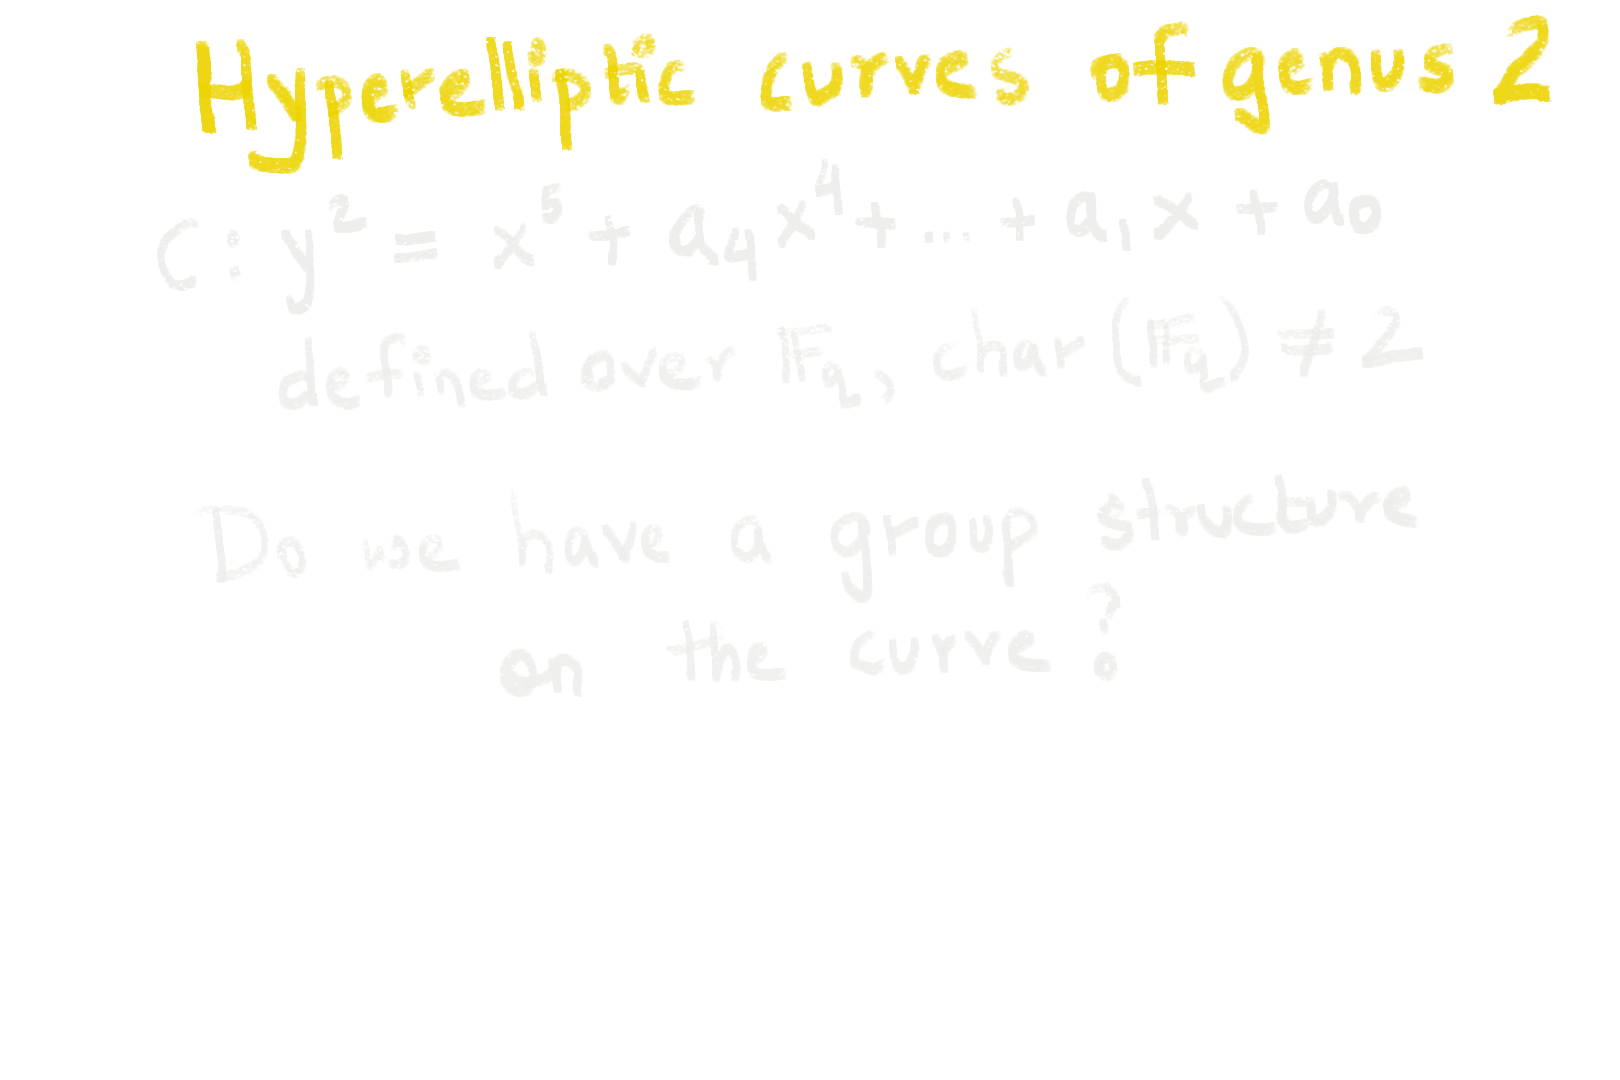 Hyperelliptic curves of genus 2
C: y² = x⁵ + a₄x⁴ + ... + a₁x + a₀
defined over 𝔽q, char(𝔽q) ≠ 2
Do we have a group structure
on the curve?